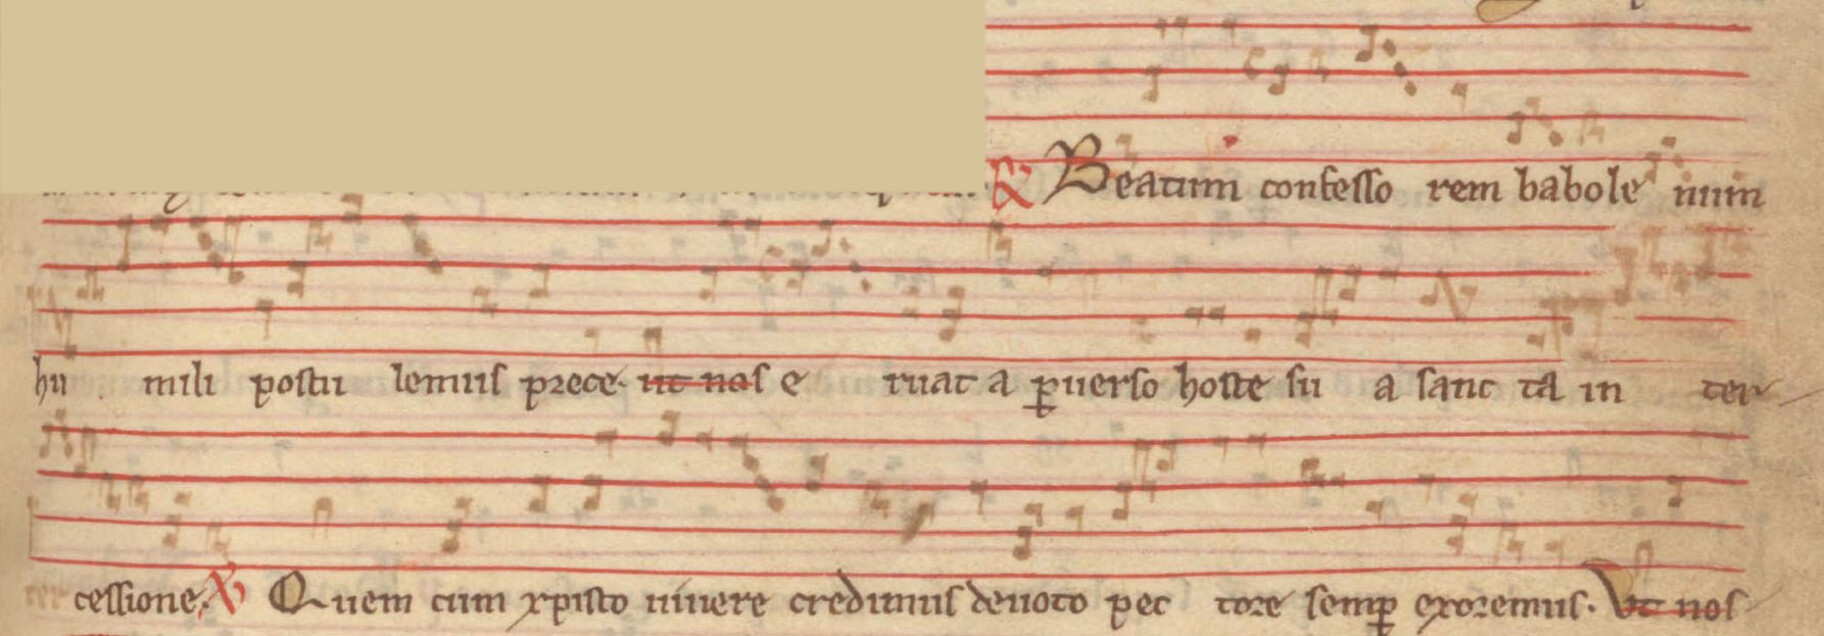 ℟ Beatum confesso rem babole num
hu mili postu lemus prece. ut nos e ruat a ꝑuerso hoste su a sanc ta in ter
cessione. ℣ Quem cum xpisto uiuere credimus deuoto pec tore semꝑ exoremus. Ut nos